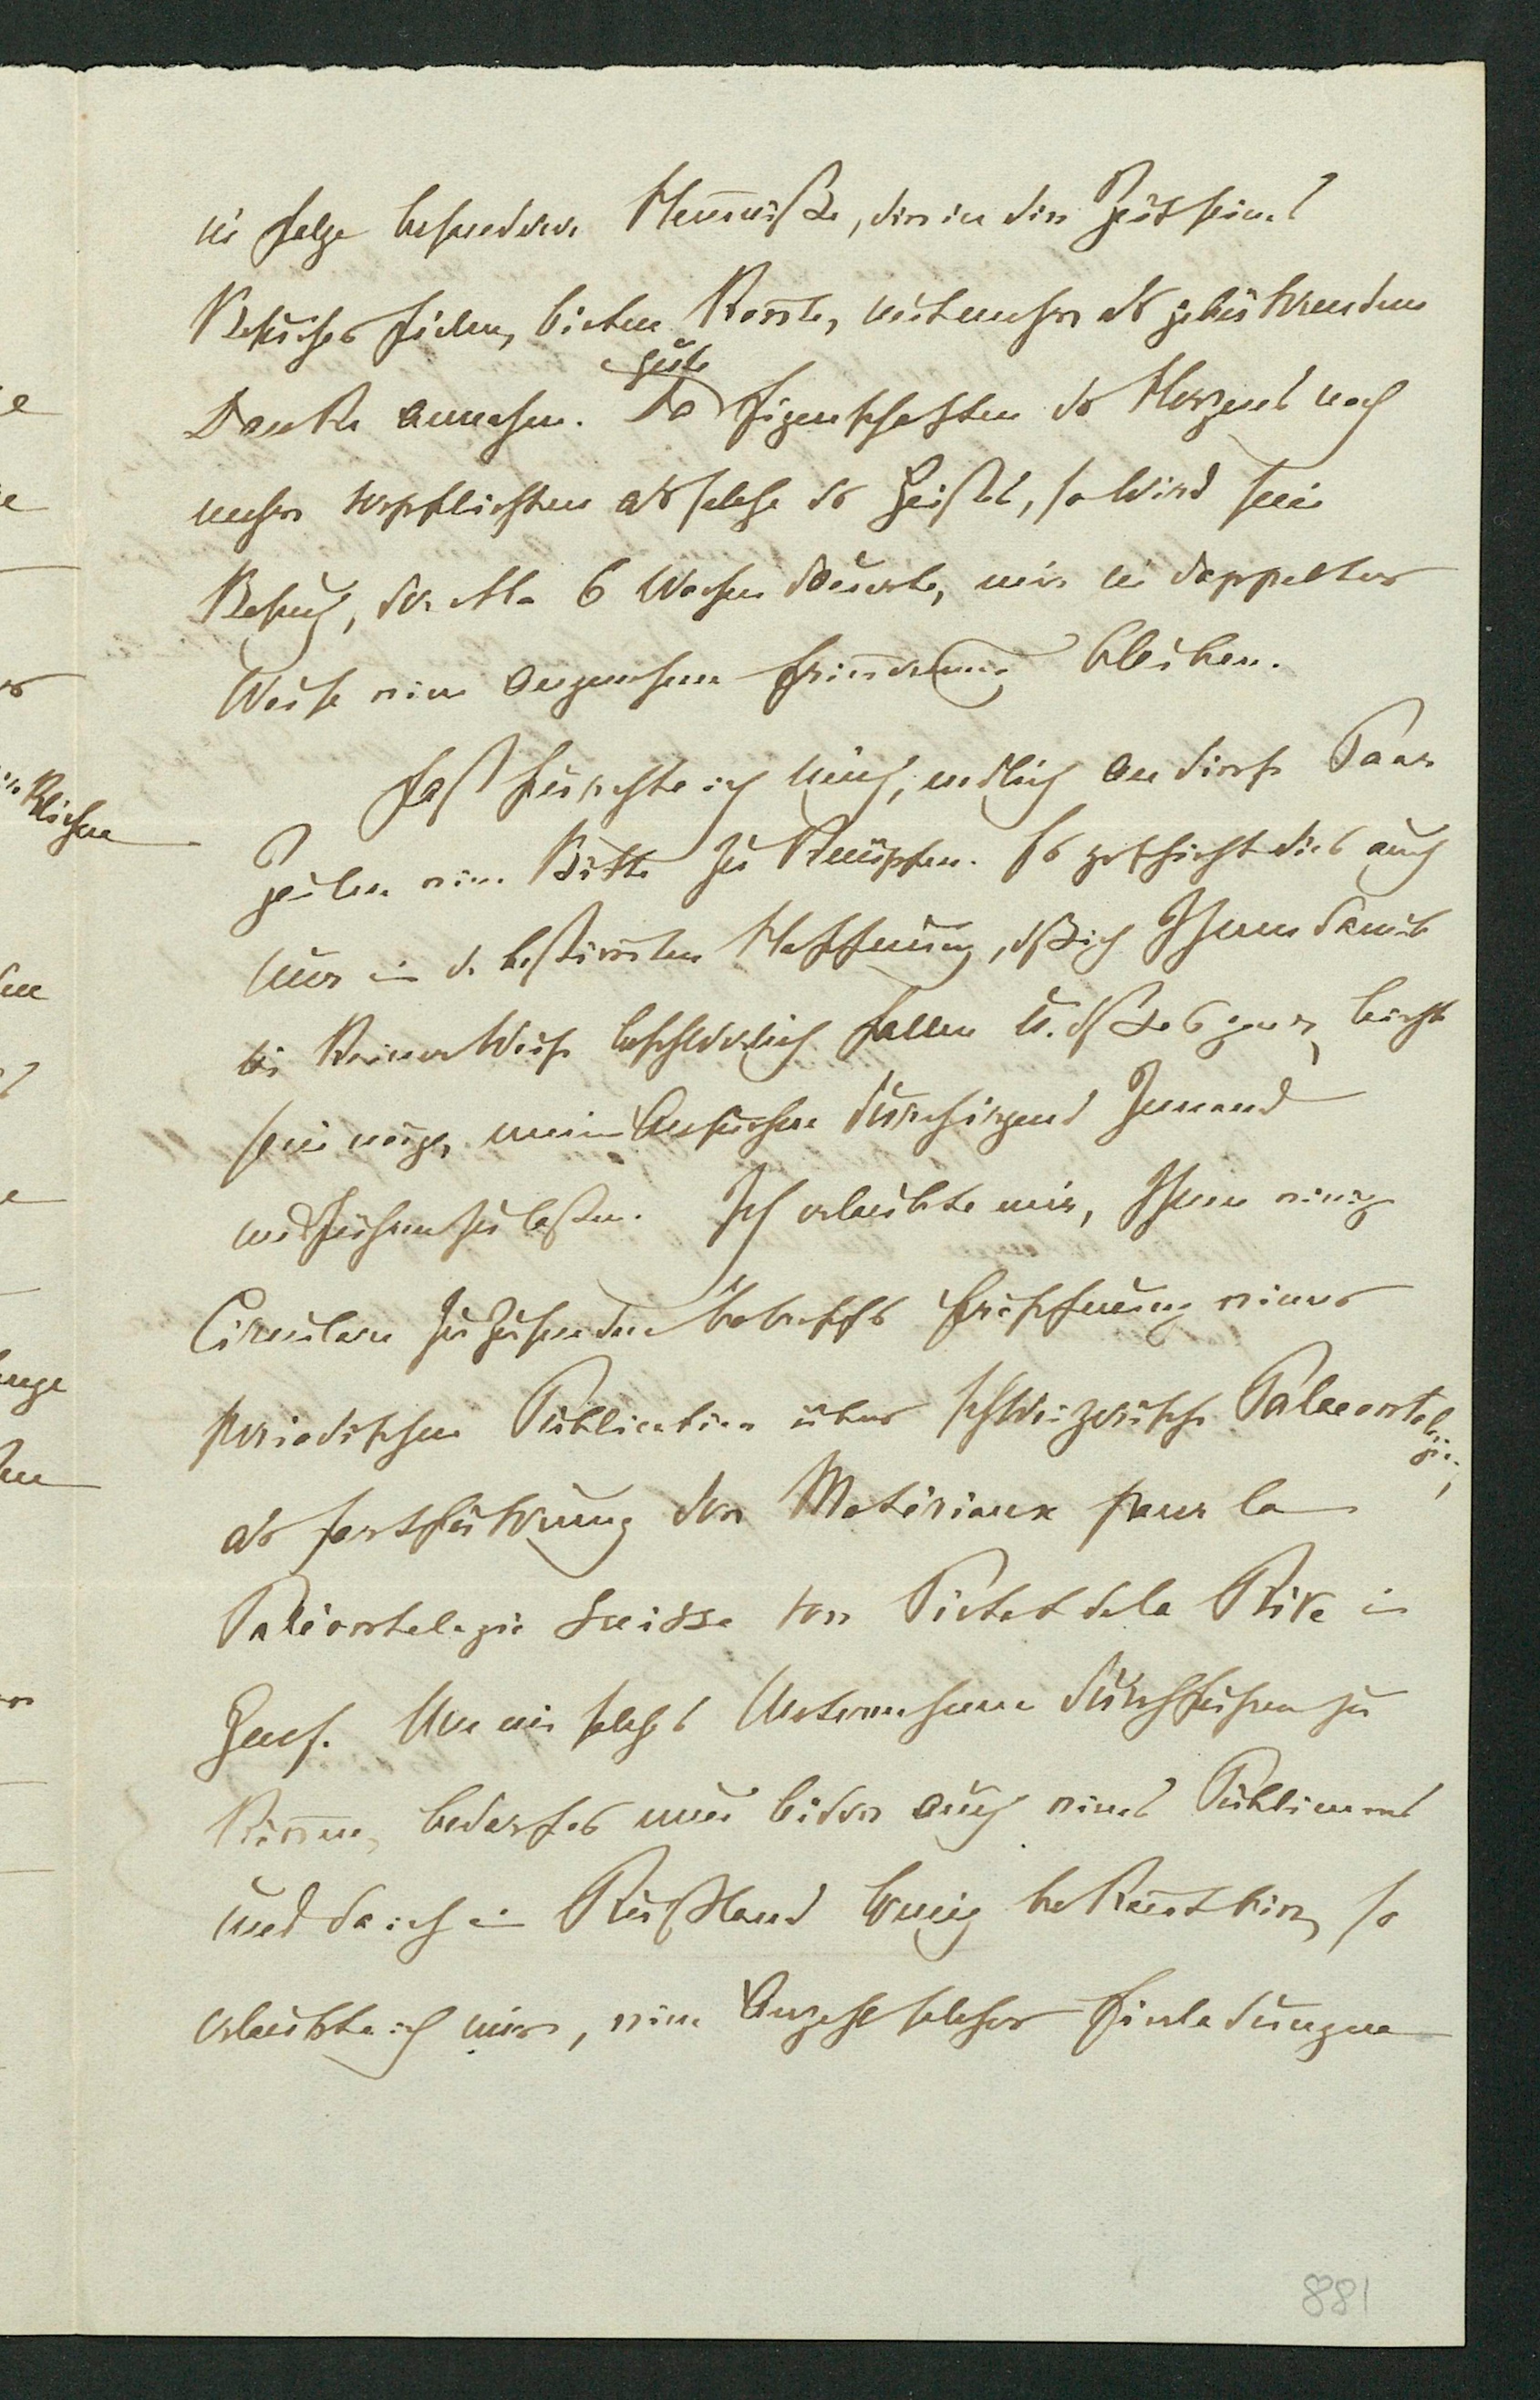 in Folge besonderer Hemnisse, die in die Zeit seines
Besuches fielen, bieten konnte, mit mehr als gebührendem
Danke annahm. Da gute Eigenschaften des Herzens noch
mehr verpflichten als solche des Geistes, so wird sein
Besuch, der etwa 6 Wochen dauerte, mir in doppelter
Weise eine angenehme Erinnerung bleiben.
Fast fürchte ich mich, endlich an diese Paar
Zeilen eine Bitte zu knüpfen. Es geschieht dies auch
nur in d. bestimten Hoffnung, dß ich Ihnen damit
in keiner Weise beschwerlich fallen u. dß es ganz leicht
sein möge, mein Ansuchen durch irgend Jemand
ausführen zu lassen. Ich erlaubte mir, Ihnen einige
Circulare zuzusenden betreffs Eröffnung einer
periodischen Publication über schweizerische Palaeontologie,
als Fortführung der Matériaux pour la
Paléontologie Suisse von Pictet de la Rive in
Genf. Um ein solches Unternehmen durchführen zu
können, bedarf es nun leider auch eines Publicums
und da ich in Rußland wenig bekannt bin, so
erlaubte ich mir, eine Anzahl solcher Einladungen
881